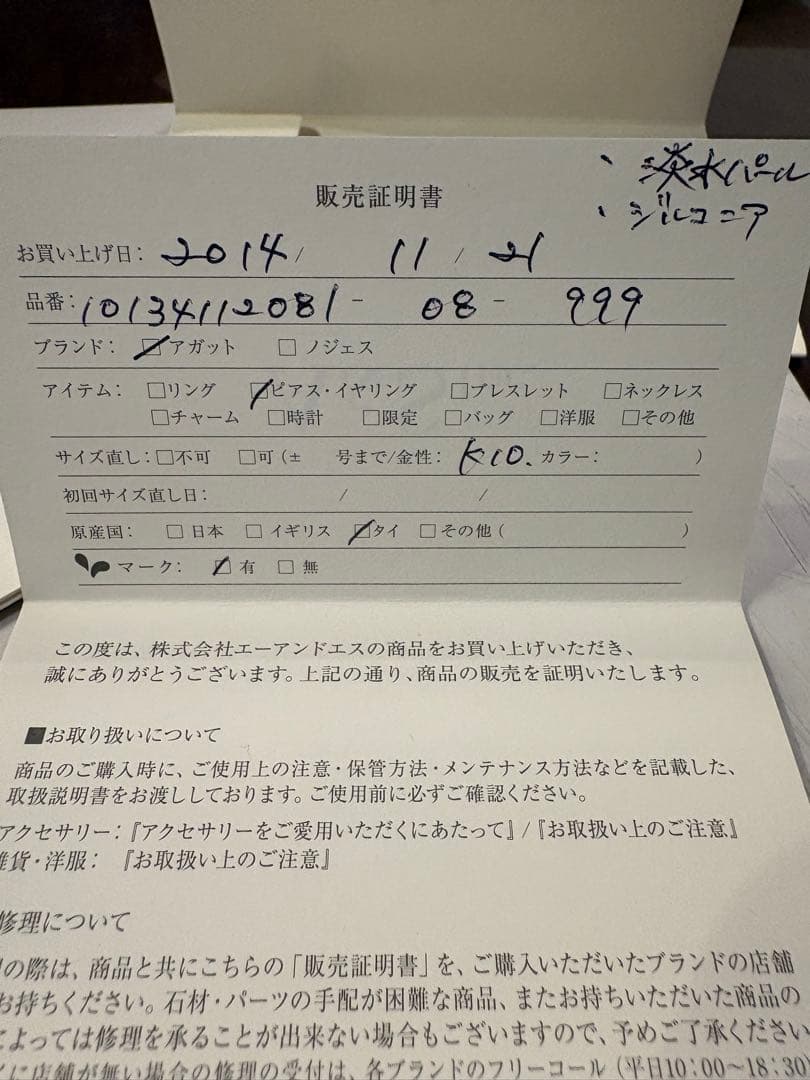 、淡水パール
、ジルコニア
販売証明書
お買い上げ日: 2014 / 11 / 21
品番: 10134112081 - 08 - 999
ブランド: ☑アガット □ノジェス
アイテム: □リング ☑ピアス・イヤリング □ブレスレット □ネックレス
□チャーム □時計 □限定 □バッグ □洋服 □その他
サイズ直し: □不可 □可(± 号まで/金性: K10. カラー: )
初回サイズ直し日: / /
原産国: □日本 □イギリス ☑タイ □その他( )
マーク: ☑有 □無
この度は、株式会社エーアンドエスの商品をお買い上げいただき、
誠にありがとうございます。上記の通り、商品の販売を証明いたします。
■お取り扱いについて
商品のご購入時に、ご使用上の注意・保管方法・メンテナンス方法などを記載した、
取扱説明書をお渡ししております。ご使用前に必ずご確認ください。
アクセサリー:『アクセサリーをご愛用いただくにあたって』/『お取扱い上のご注意』
雑貨・洋服: 『お取扱い上のご注意』
修理について
の際は、商品と共にこちらの「販売証明書」を、ご購入いただいたブランドの店舗
お持ちください。石材・パーツの手配が困難な商品、またお持ちいただいた商品の
によっては修理を承ることが出来ない場合もございますので、予めご了承ください
くに店舗が無い場合の修理の受付は、各ブランドのフリーコール(平日10:00〜18:30